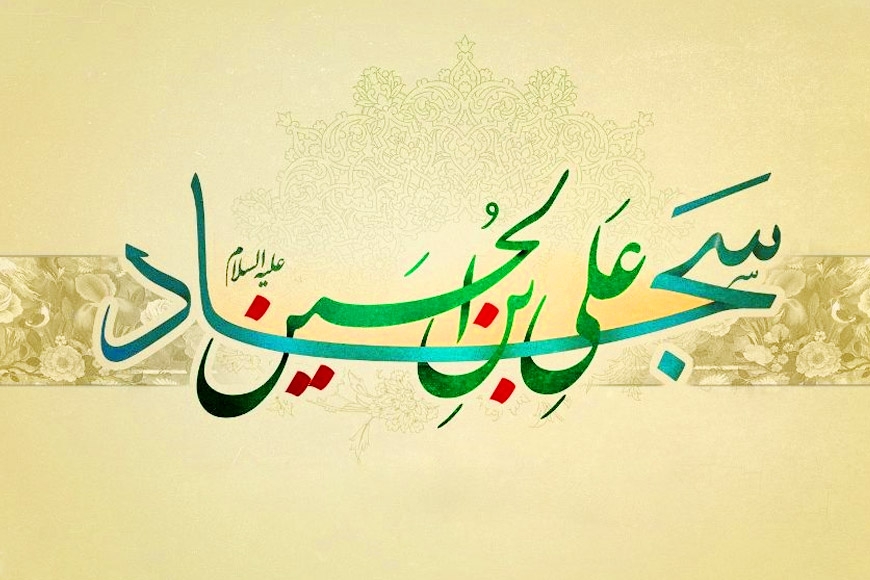 سجاد
عَلیِ بنِ الحُسَین
علیه السلام